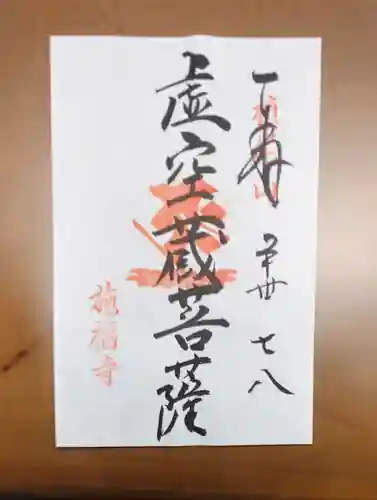 奉拝
平卅 七 八
虚空蔵菩薩
施福寺